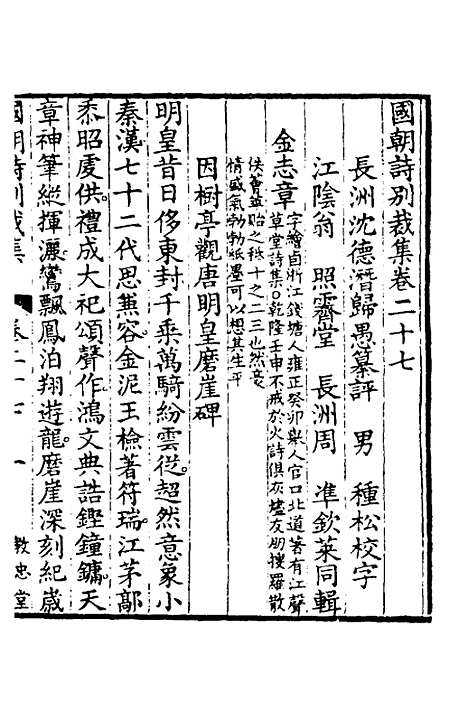 國朝詩別裁集卷二十七
長洲沈德潛歸愚纂評 男 種松校字
江陰翁 照霽堂 長洲周 準欽萊同輯
金志章
字繪卣浙江錢塘人雍正癸卯舉人官口北道著有江聲
草堂詩集○乾隆壬申不戒於火詩俱灰燼友朋搜羅散
佚會萃貽之秪十之二三也然意
情感氣勃勃紙墨可以想其生平
因樹亭觀唐明皇磨崖碑
明皇昔日侈東封千乘萬騎紛雲從超然意象小
秦漢七十二代思兼容金泥玉檢著符瑞江茅鄗
黍昭虔供禮成大祀頌聲作鴻文典誥鏗鐘鏞天
章神筆縱揮灑鸞飄鳳泊翔遊龍磨崖深刻紀歲
國朝詩別裁集 卷二十七 一 教忠堂